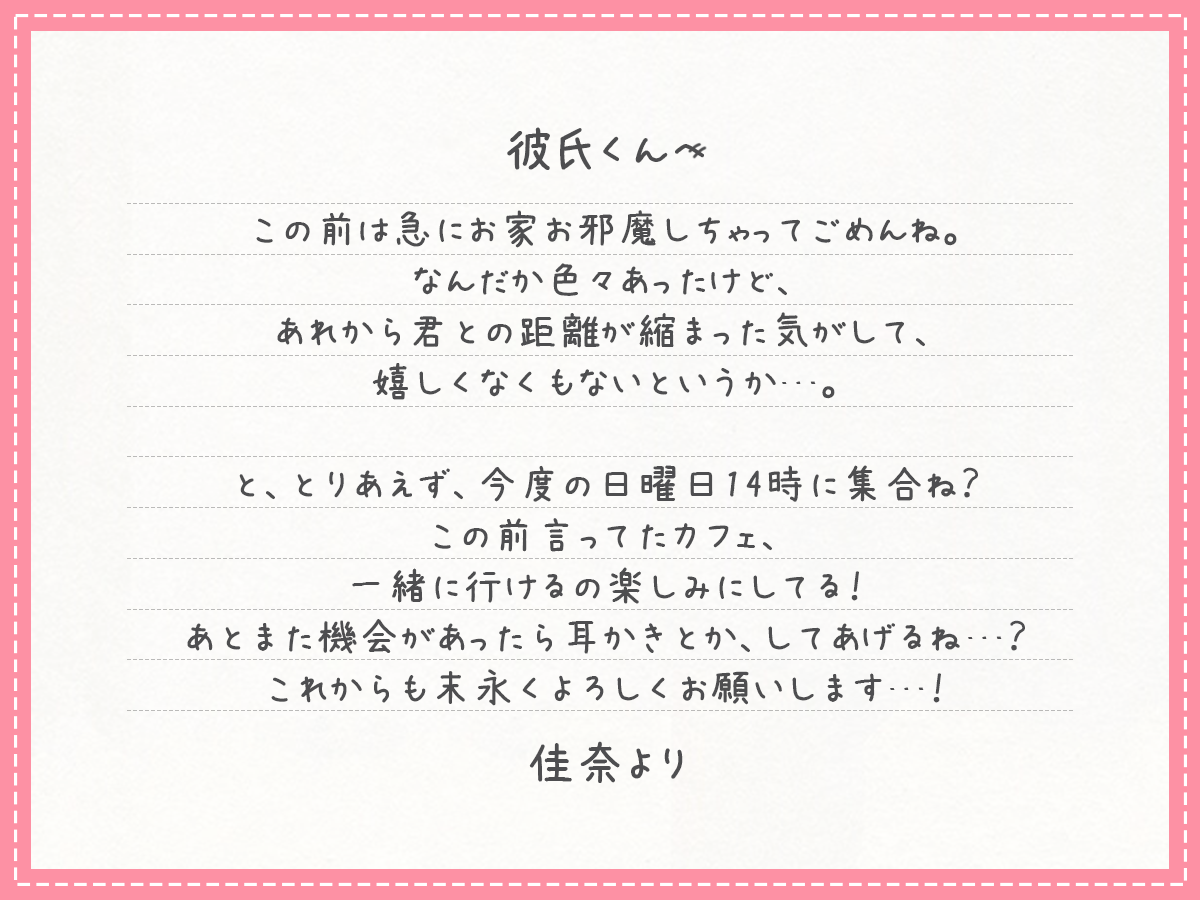 彼氏くんへ
この前は急にお家お邪魔しちゃってごめんね。
なんだか色々あったけど、
あれから君との距離が縮まった気がして、
嬉しくなくもないというか…。
と、とりあえず、今度の日曜日14時に集合ね?
この前言ってたカフェ、
一緒に行けるの楽しみにしてる!
あとまた機会があったら耳かきとか、してあげるね…?
これからも末永くよろしくお願いします…!
佳奈より